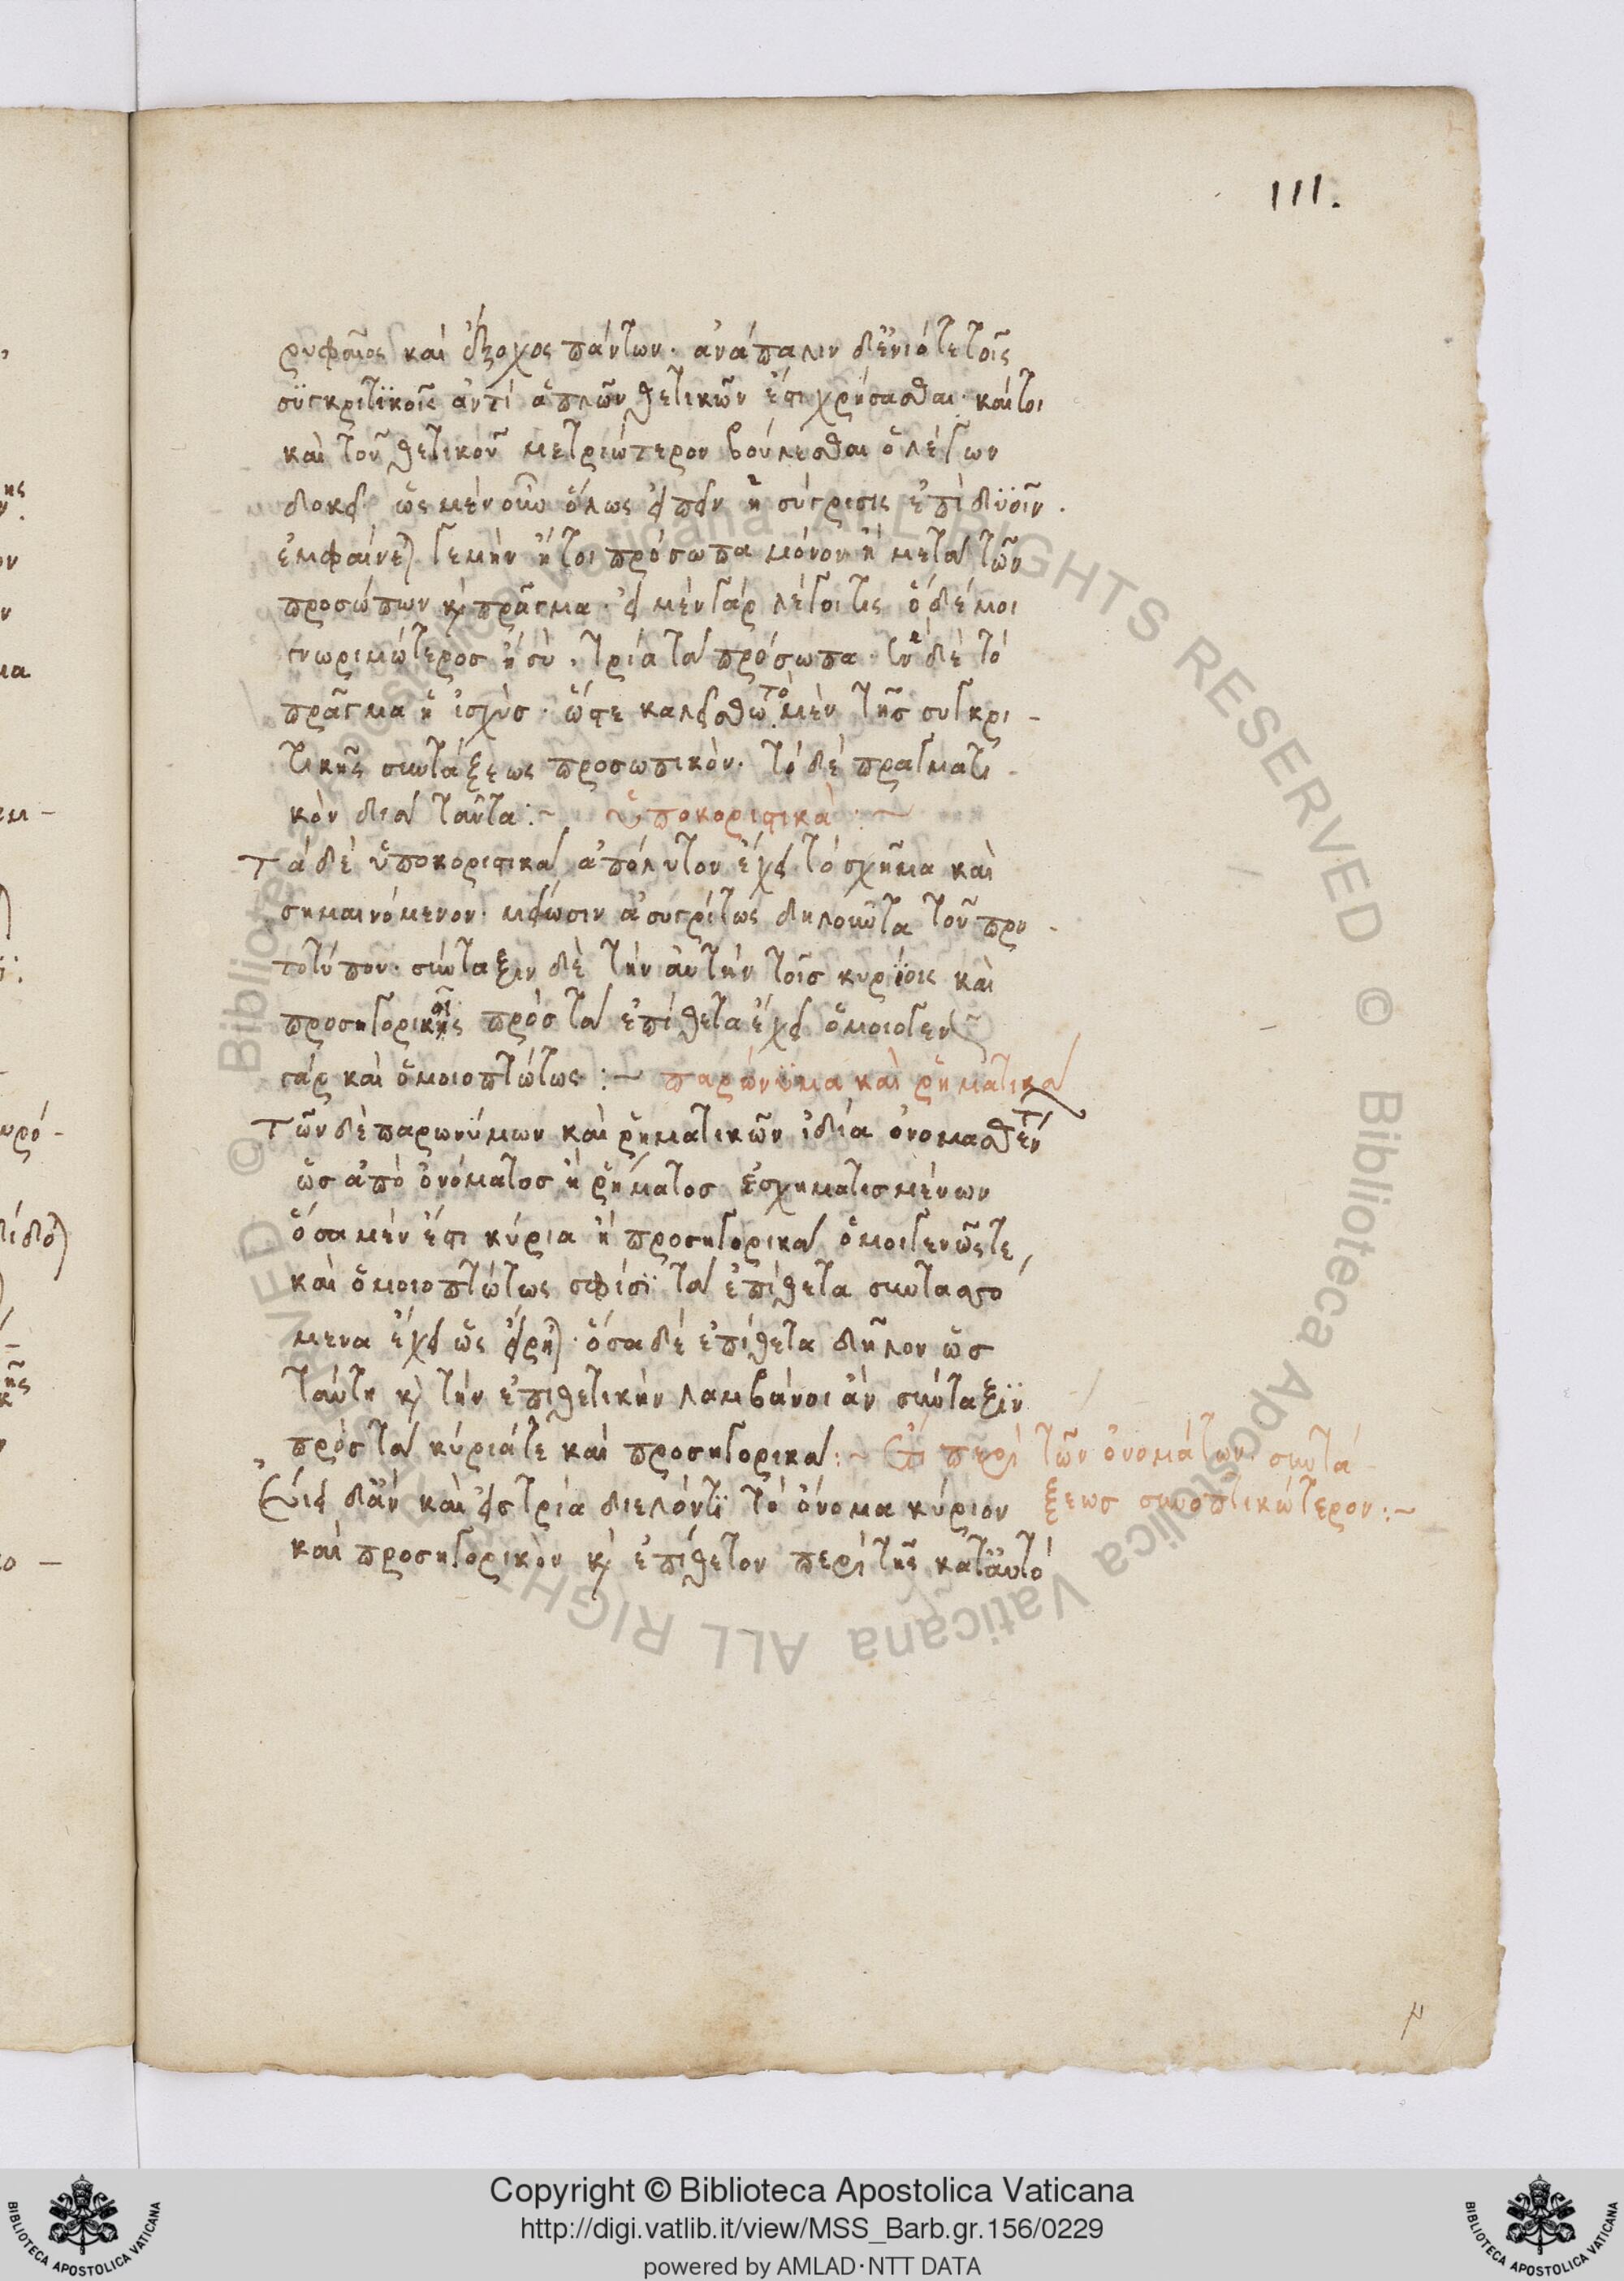 111.
ρυφαῖος καὶ ἔξοχος πάντων· ἀνάπαλιν δ' ἐνίοτε τοῖς
συγκριτικοῖς ἀντὶ ἁπλῶν θετικῶν ἔστι χρήσασθαι· καίτοι
καὶ τοῦ θετικοῦ μετριώτερον βούλεσθαι ὁ λέγων
δοκεῖ· ὡς μὲν οὖν ὅλως εἰπεῖν ἡ σύγκρισις ἐπὶ δυοῖν·
ἐμφαίνεται γεμὴν ἤτοι πρόσωπα μόνον ἢ μετὰ τῶν
προσώπων καὶ πρᾶγμα· εἰ μὲν γάρ λέγοι τις ὅδέ μοι
γνωριμώτερος ἢ σὺ, τρία τὰ πρόσωπα· δὲ τὸ
πρᾶγμα ἡ ἰσχὺς· ὥστε καλείσθω τὸ μὲν τῆς συγκρι-
τικῆς συντάξεως προσωπικὸν· τὸ δὲ πραγματι-
κὸν διὰ ταῦτα:~ ὑποκοριστικὰ:~
Τὰ δὲ ὑποκοριστικὰ ἀπόλυτον ἔχει τὸ σχῆμα καὶ
σημαινόμενον· μείωσιν ἀσυγκρίτως δηλοῦντα τοῦ πρω-
τοτύπου· σύνταξιν δὲ τὴν αὐτὴν τοῖς κυρίοις καὶ
προσηγορικοῖς πρὸς τὰ ἐπίθετα ἔχει ὁμοιογενῶς
γάρ καὶ ὁμοιοπτώτως:~ παρώνυμα καὶ ῥηματικὰ
Τῶν δὲ παρωνύμων καὶ ῥηματικῶν ἰδίᾳ ὀνομασθέντων
ὡς ἀπὸ ὀνόματος ἢ ῥήματος ἐσχηματισμένων
ὅσα μέν ἐστι κύρια ἢ προσηγορικὰ ὁμοιογενῶς τε
καὶ ὁμοιοπτώτως σφίσι τὰ ἐπίθετα συντασσό
μενα ἔχει ὡς εἴρηται· ὅσα δὲ ἐπίθετα δῆλον ὡς
ταύτῃ καὶ τὴν ἐπιθετικὴν λαμβάνοι ἂν σύνταξιν
πρὸς τὰ κύριά τε καὶ προσηγορικὰ:~ ἔτι περὶ τῶν ὀνομάτων συντά
δ' ἂν καὶ εἰς τρία διελόντι τὸ ὄνομα κύριον ξεως συνοπτικώτερον:~
καὶ προσηγορικὸν καὶ ἐπίθετον περὶ τῆς κατ' αὐτὸ
Copyright © Biblioteca Apostolica Vaticana
http://digi.vatlib.it/view/MSS_Barb.gr.156/0229
powered by AMLAD·NTT DATA